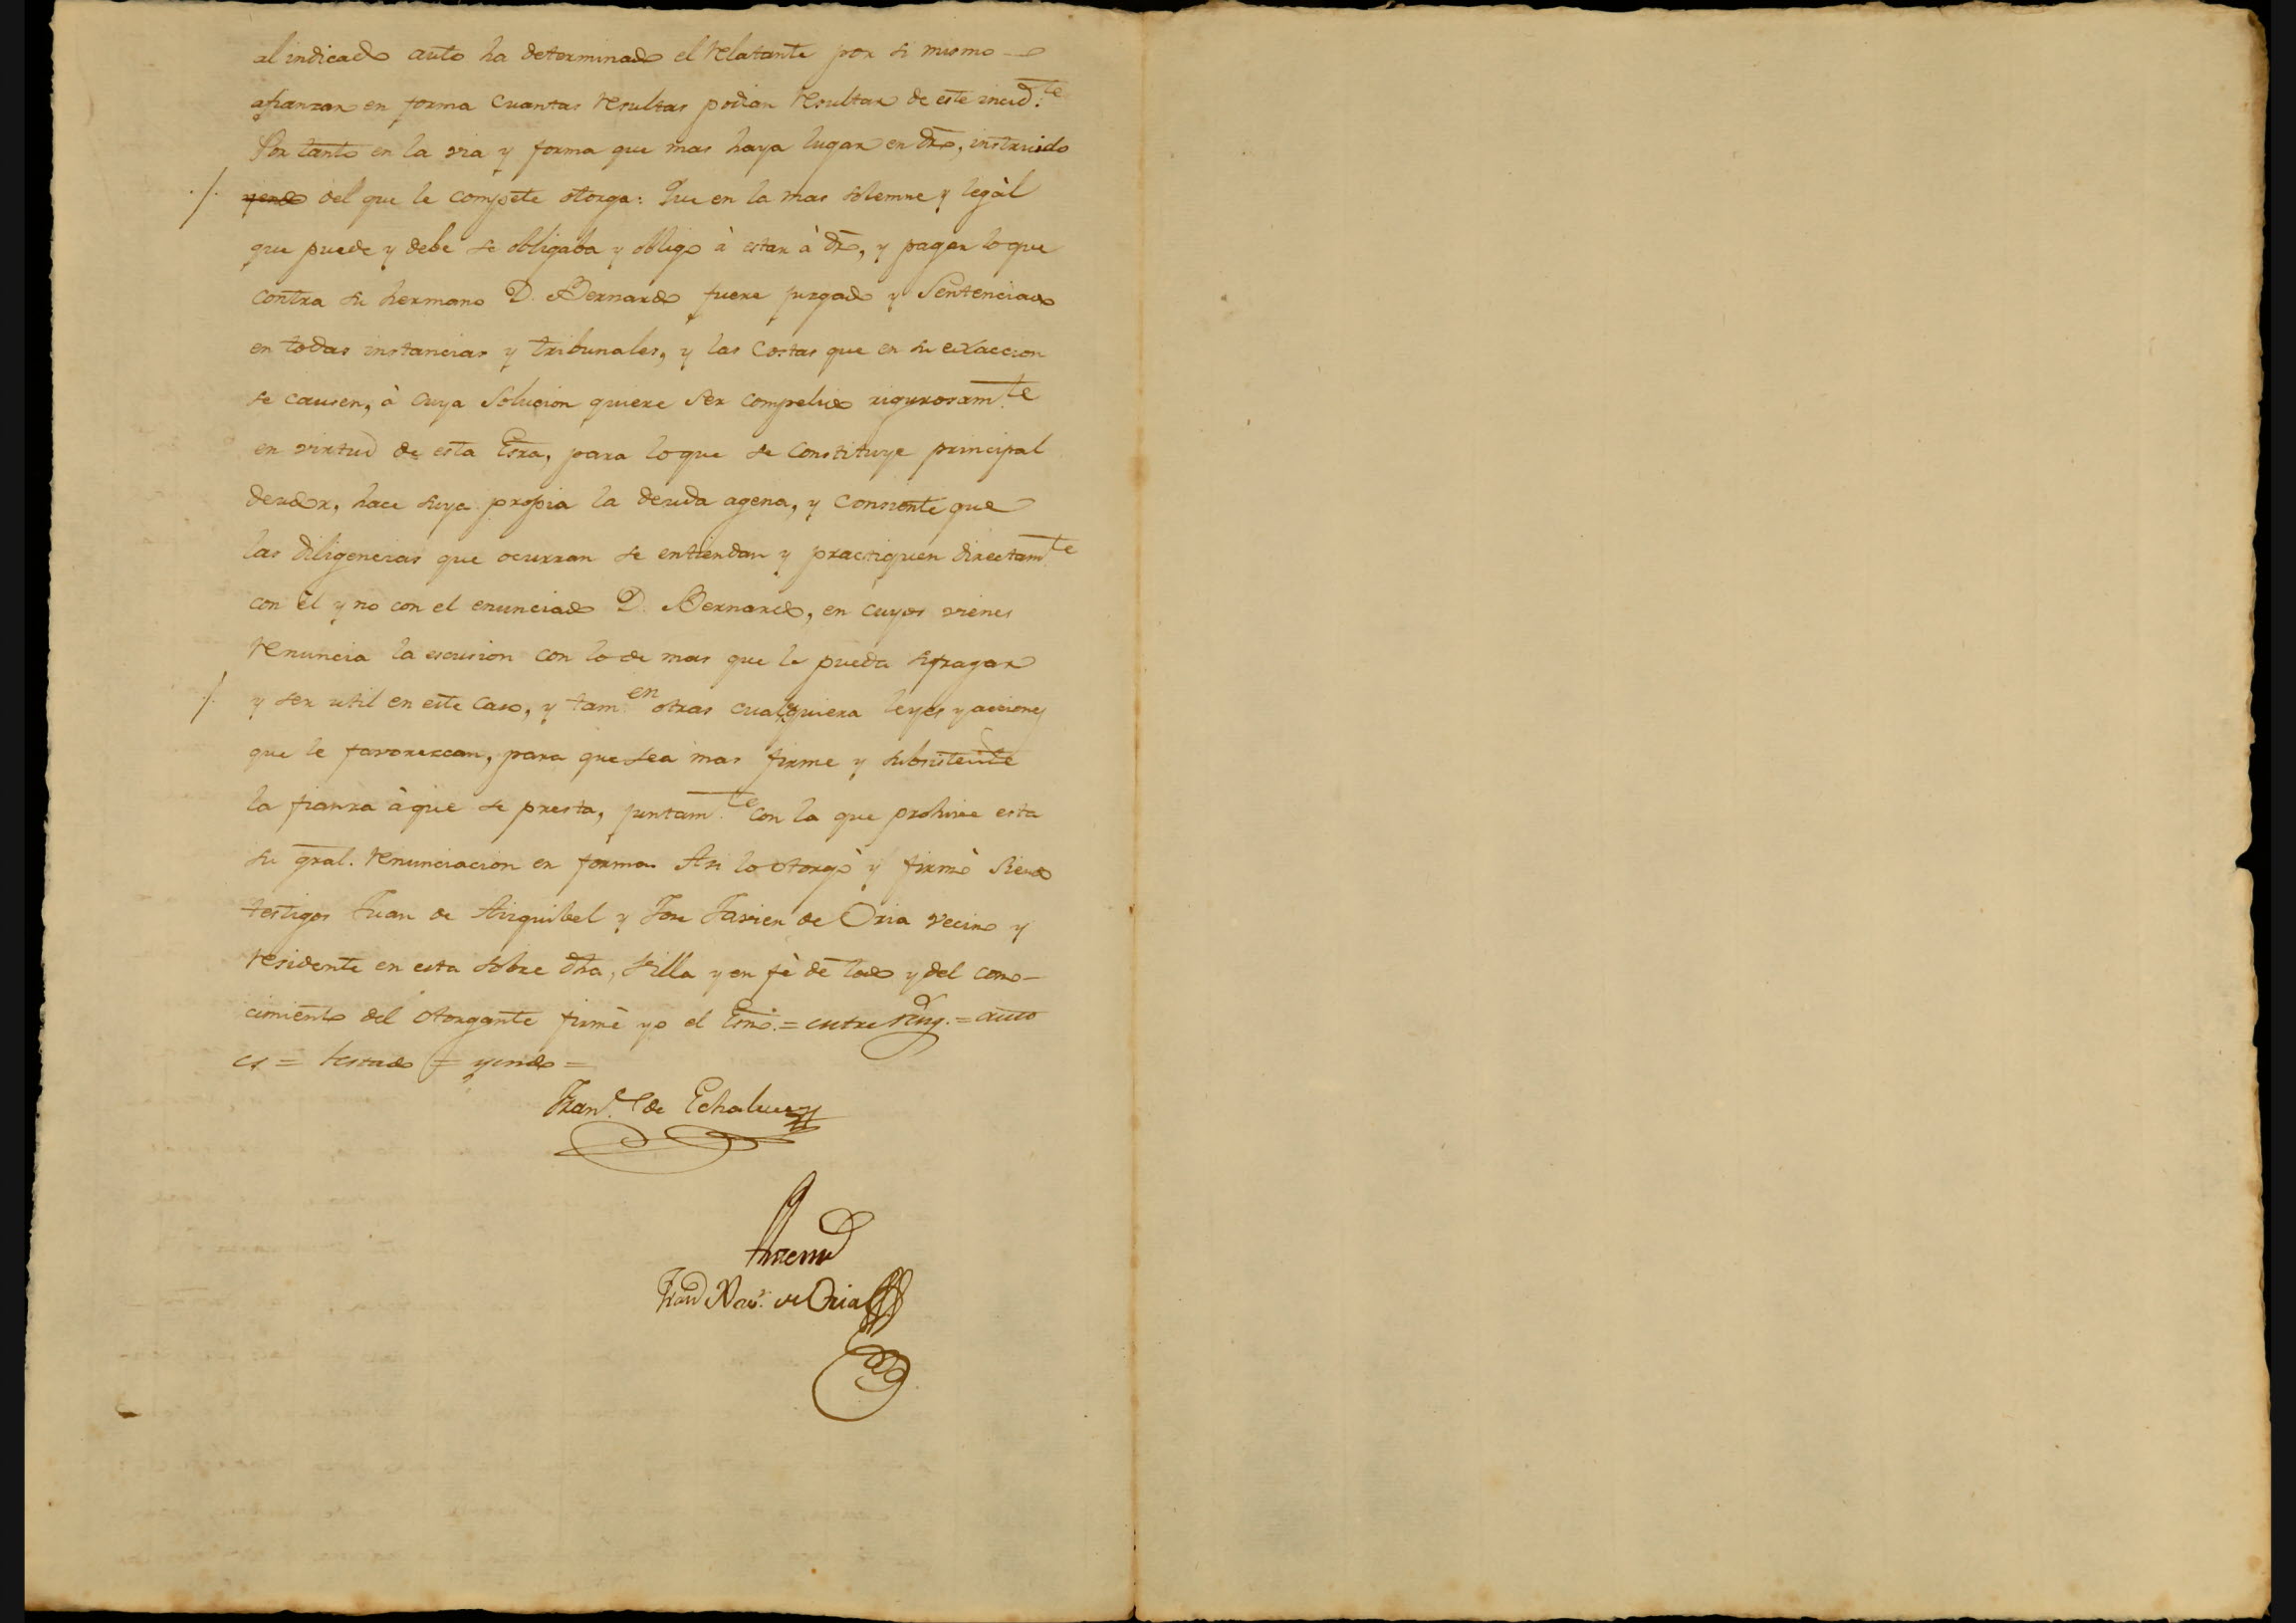 al indicado auto ha determinado el relatante por si mismo
afianzar en forma cuantas resultas podian resultar de este incid.te
Por tanto en la via y forma que mas haya lugar en dro, instruido
./. yendo del que le compete otorga: Que en la mas solemne y legàl
que puede y debe se obligaba y obligo à estar à dro, y pagar lo que
contra su hermano D. Bernardo fuere juzgado y Sentenciado
en todas instancias y tribunales, y las Costas que en su exaccion
se causen, à cuya Solucion quiere ser compelido rigurosam.te
en virtud de esta Esra, para lo que se constituye principal
deudor, hace suya propia la deuda agena, y consiente que
las diligencias que ocurran se entiendan y practiquen directam.te
con èl y no con el enunciado D. Bernardo, en cuyos vienes
renuncia la escusion con lo de mas que le pueda sufragar
./. y ser util en este caso, y tam.en otras cualquiera leyes y acciones
que le favorezcan, para que sea mas firme y subsistente
la fianza à que se presta, juntam.te con la que prohive esta
su gral. renunciacion en forma. Asi lo otorgò y firmò siendo
testigos Juan de Aizquibel y Jose Javier de Oria vecino y
residente en esta sobre dha, Villa y en fè de todo y del cono-
cimiento del otorgante firmè yo el Esno. = entre reng. = auto
es = testado = yendo =
Fran.co de
Antemi
Fran.co Xav.r de Oria